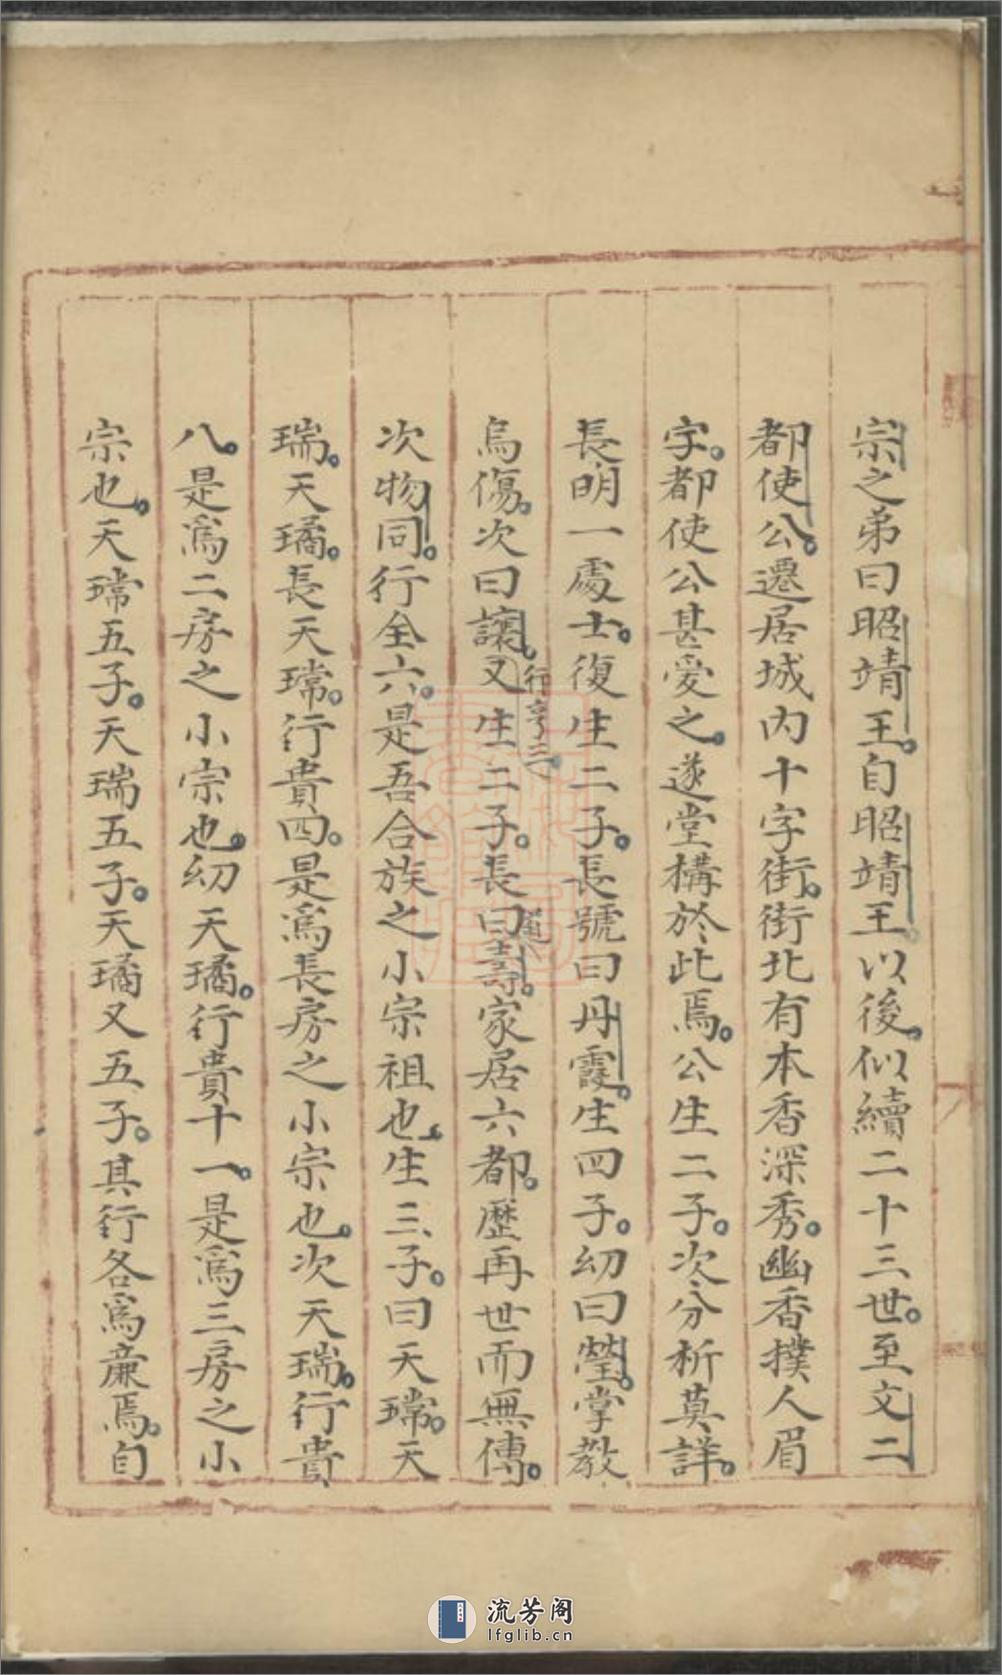 宗之弟曰昭靖王自昭靖王以後似續二十三世至文二
都使公遷居城内十字街街北有本香深秀幽香撲人眉
字都使公甚爱之遂堂構於此焉公生二子次分析莫詳
長明一處士復生二子長號曰丹霞生四子幼曰瑩掌教
烏傷次曰讓行亨三又生二子長曰道壽家居六都歷再世而無傳
次物同行全六是吾合族之小宗祖也生三子曰天瑺天
瑞天璚長天瑺行貴四是爲長房之小宗也次天瑞行貴
八是爲二房之小宗也幼天璚行貴十一是爲三房之小
宗也天瑺五子天瑞五子天璚又五子其行各爲亷焉自
流芳阁
lfglib.cn